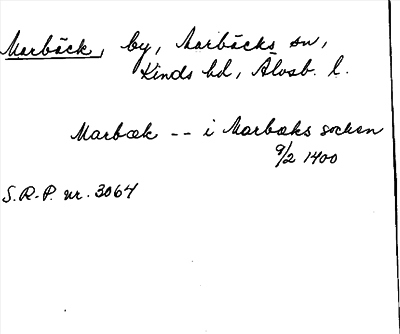 Marbäck, by, Marbäcks sn,
Kinds hd, Älvsb. l.
Marbæk -- i Marbæks socken
9/2 1400
S.R.-P. nr. 3064